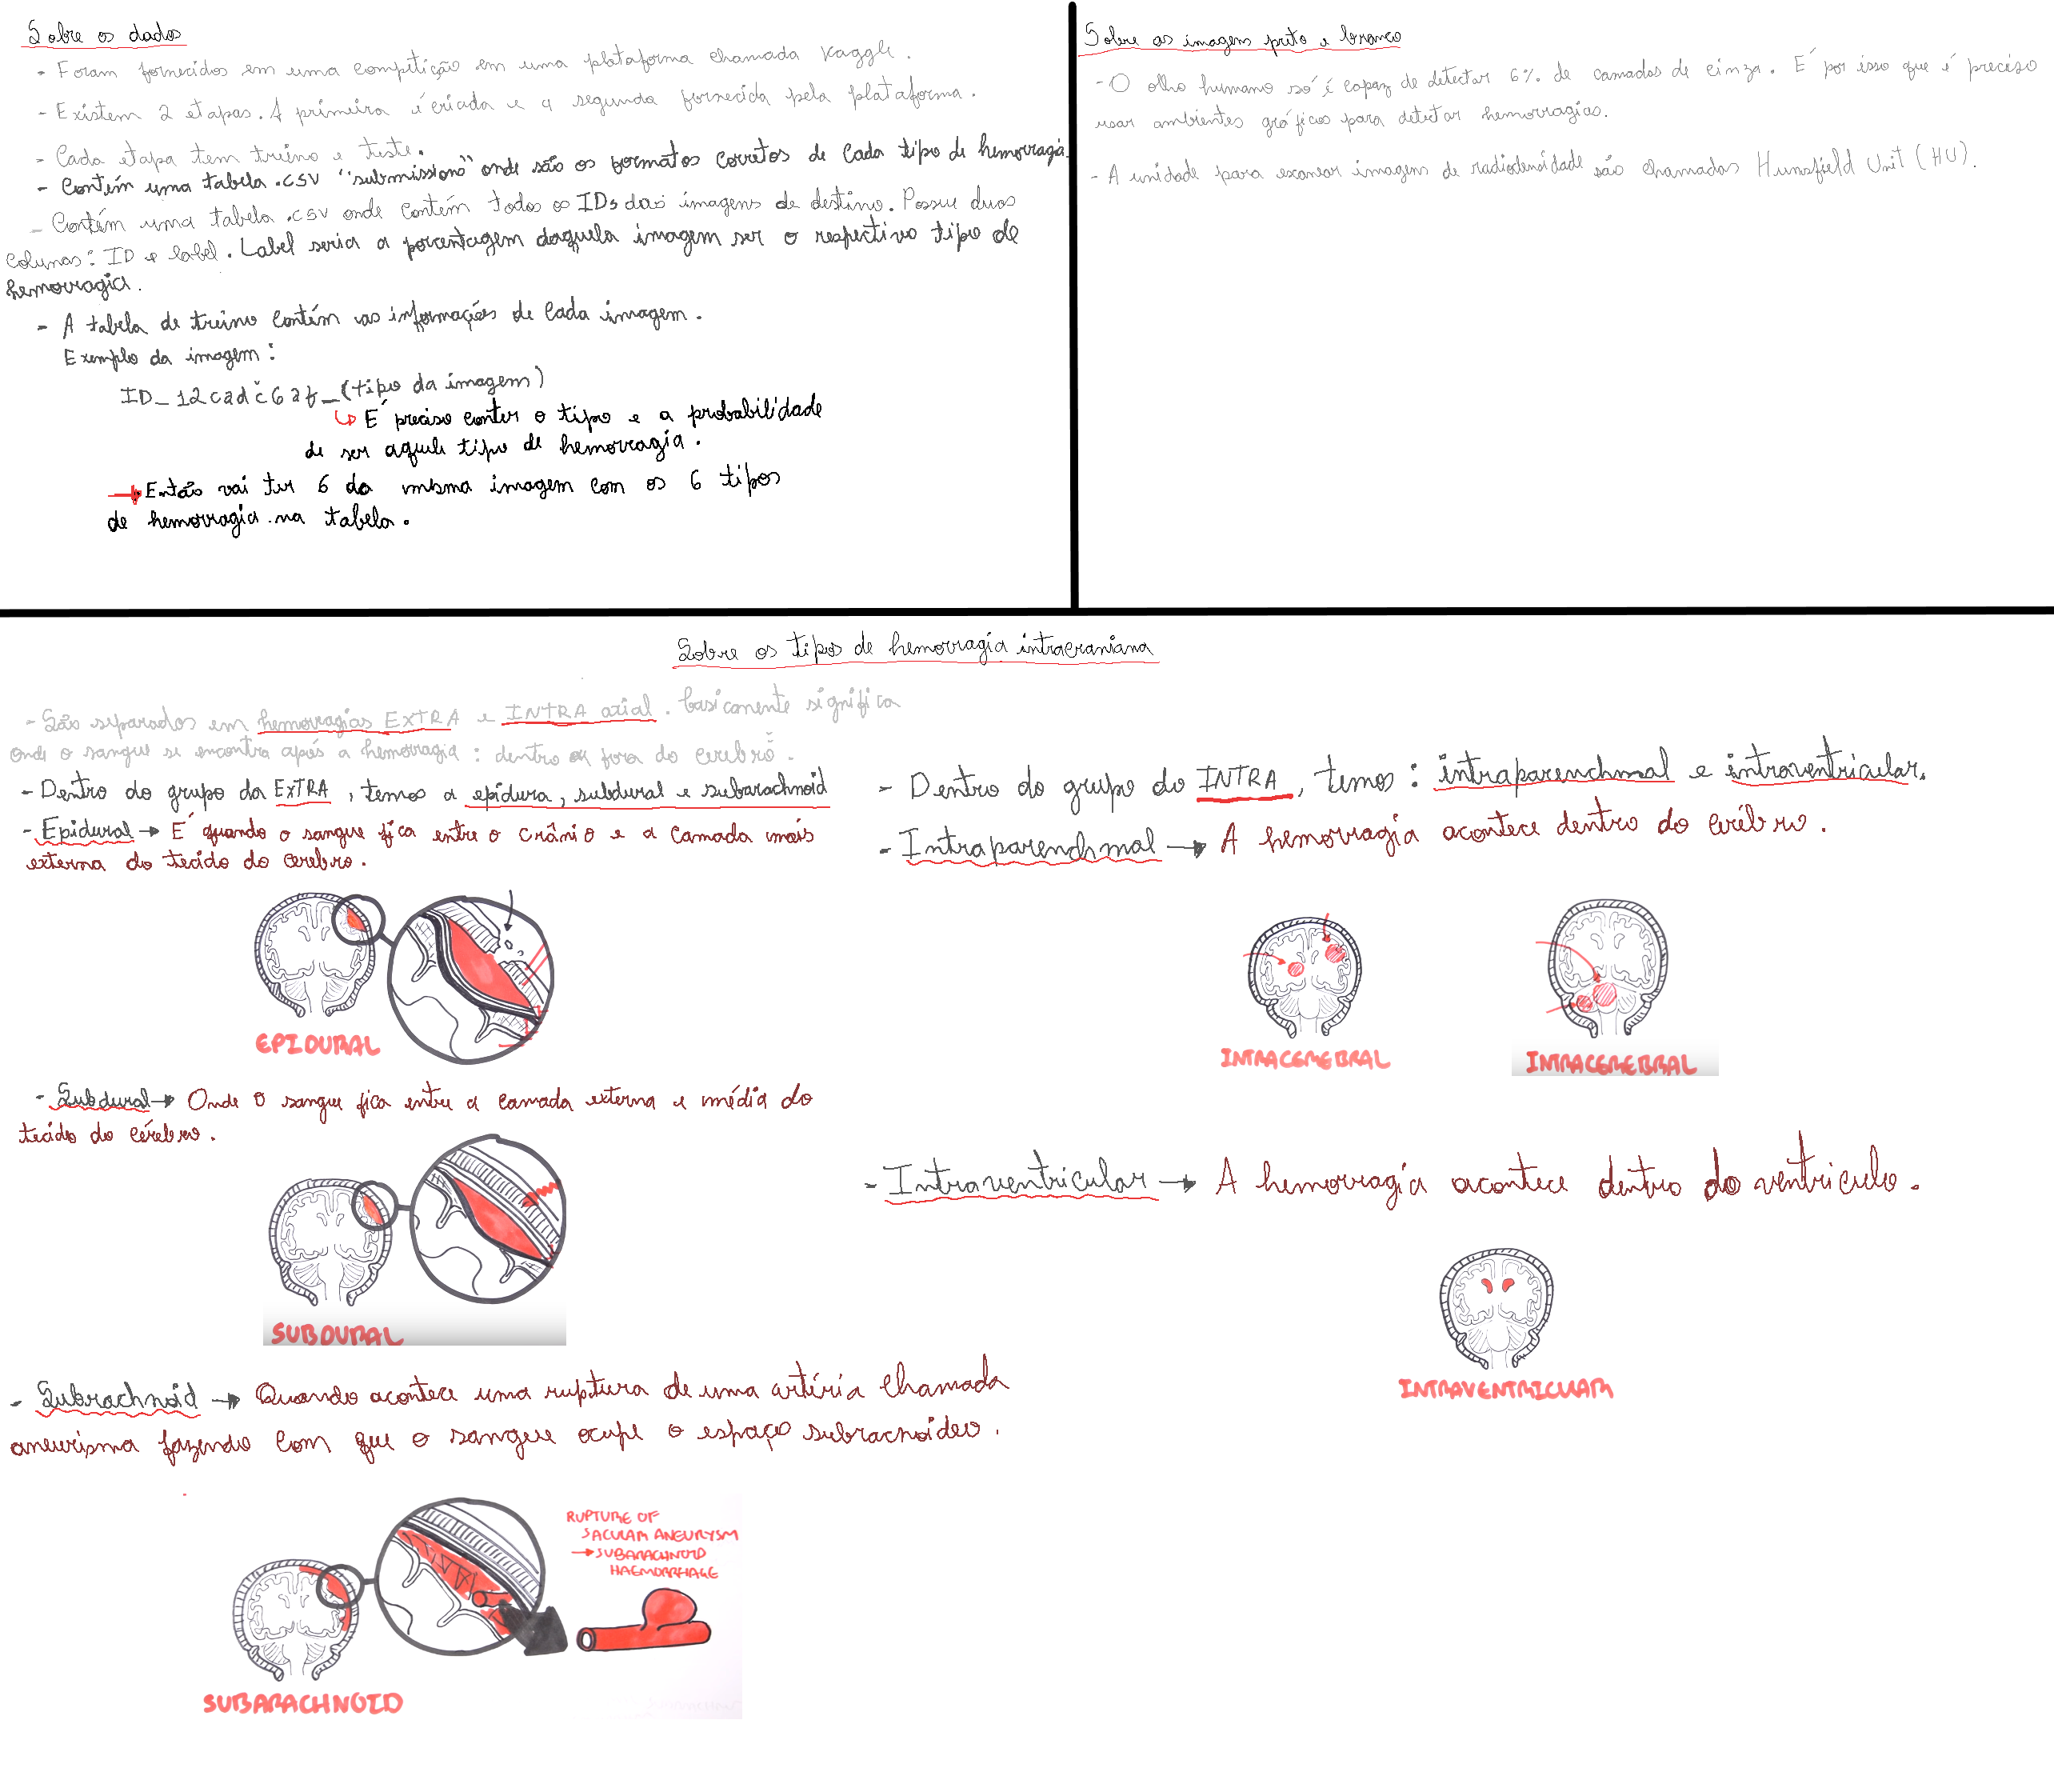 Sobre os dados
- Foram fornecidos em uma competição em uma plataforma chamada Kaggle.
- Existem 2 etapas. A primeira é criada e a segunda fornecida pela plataforma.
- Cada etapa tem treino e teste.
- Contém uma tabela .csv "submission" onde são os formatos corretos de cada tipo de hemorragia.
- Contém uma tabela .csv onde contém todos os IDs das imagens de destino. Possui duas
colunas: ID e label. Label seria a porcentagem daquela imagem ser o respectivo tipo de
hemorragia.
- A tabela de treino contém as informações de cada imagem.
Exemplo da imagem:
(tipo da imagem)
↳ É preciso conter o tipo e a probabilidade
de ser aquele tipo de hemorragia.
→ Então vai ter 6 da mesma imagem com os 6 tipos
de hemorragia na tabela.
Sobre as imagens preto e branco
- O olho humano só é capaz de detectar 6% de camadas de cinza. É por isso que é preciso
usar ambientes gráficos para detectar hemorragias.
- A unidade para escanear imagens de radiodensidade são chamadas Hunsfield Unit (HU).
Sobre os tipos de hemorragia intracraniana
- São separados em hemorragias EXTRA e INTRA axial. basicamente significa
onde o sangue se encontra após a hemorragia: dentro ou fora do cerebro.
- Dentro do grupo da EXTRA, temos a epidura, subdural e subarachnoid
- Epidural → É quando o sangue fica entre o crânio e a camada mais
externa do tecido do cerebro.
EPIDURAL
- Subdural → Onde o sangue fica entre a camada externa e média do
tecido do cérebro.
SUBDURAL
- Subrachnoid → Quando acontece uma ruptura de uma artéria chamada
aneurisma fazendo com que o sangue ocupe o espaço subrachnoideo.
RUPTURE OF
SACULAR ANEURYSM
→ SUBARACHNOID
HAEMORRHAGE
SUBARACHNOID
- Dentro do grupo do INTRA, temos: intraparenchmal e intraventricular.
- Intraparenchmal → A hemorragia acontece dentro do cérebro.
INTRACEREBRAL
INTRACEREBRAL
- Intraventricular → A hemorragia acontece dentro do ventriculo.
INTRAVENTRICULAR